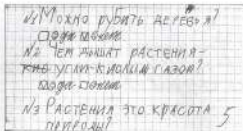 №1 Можно рубить деревья?
№2 Чем дышат растения-
углекислым газом?
№3 Растения это красота 5
природы?